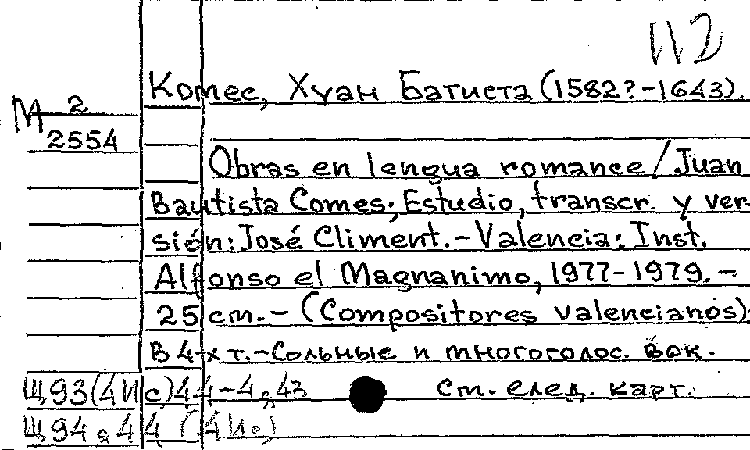 112
Комес, Хуан Батиста (1582?-1643).
М 2
2554
Obras en lengua romance / Juan
Bautista Comes; Estudio, transcr. y ver-
sión: José Climent. - Valencia: Inst.
Alfonso el Magnanimo, 1977-1979. -
25 cm. - (Compositores valencianos).
В 4-х т. - Сольные и многоголос. вок.
Щ93(4Ис)44-4,43 см. след. карт.
Щ94.44 (4И.)